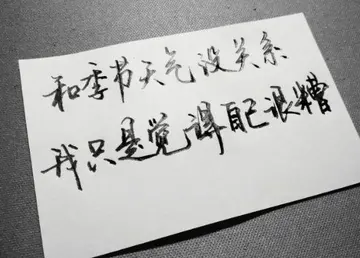 和季节天气没关系
我只是觉得自己很糟